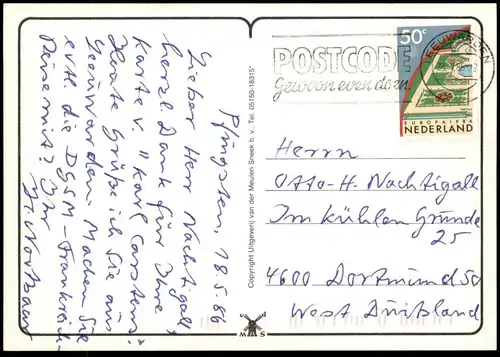 Pfingsten, 18.5.86
Lieber Herr Nachtigall,
herzl. Dank für Ihre
Karte v. "Karl Carstens".
Heute Grüße ich Sie aus
Leeuwarden. Machen Sie
evtl. die DGSM-Frankreich-
Reise mit? Ihr
Copyright Uitgeverij van der Meulen Sneek b.v., Tel. 05150-18315*
M S
POSTCODE
Gewoon even doen.
LEEUWARDEN
50c
EUROPA 1986
NEDERLAND
Herrn
Otto-H. Nachtigall
Im kühlen Grunde
25
4600 Dortmund 50
West Duitsland